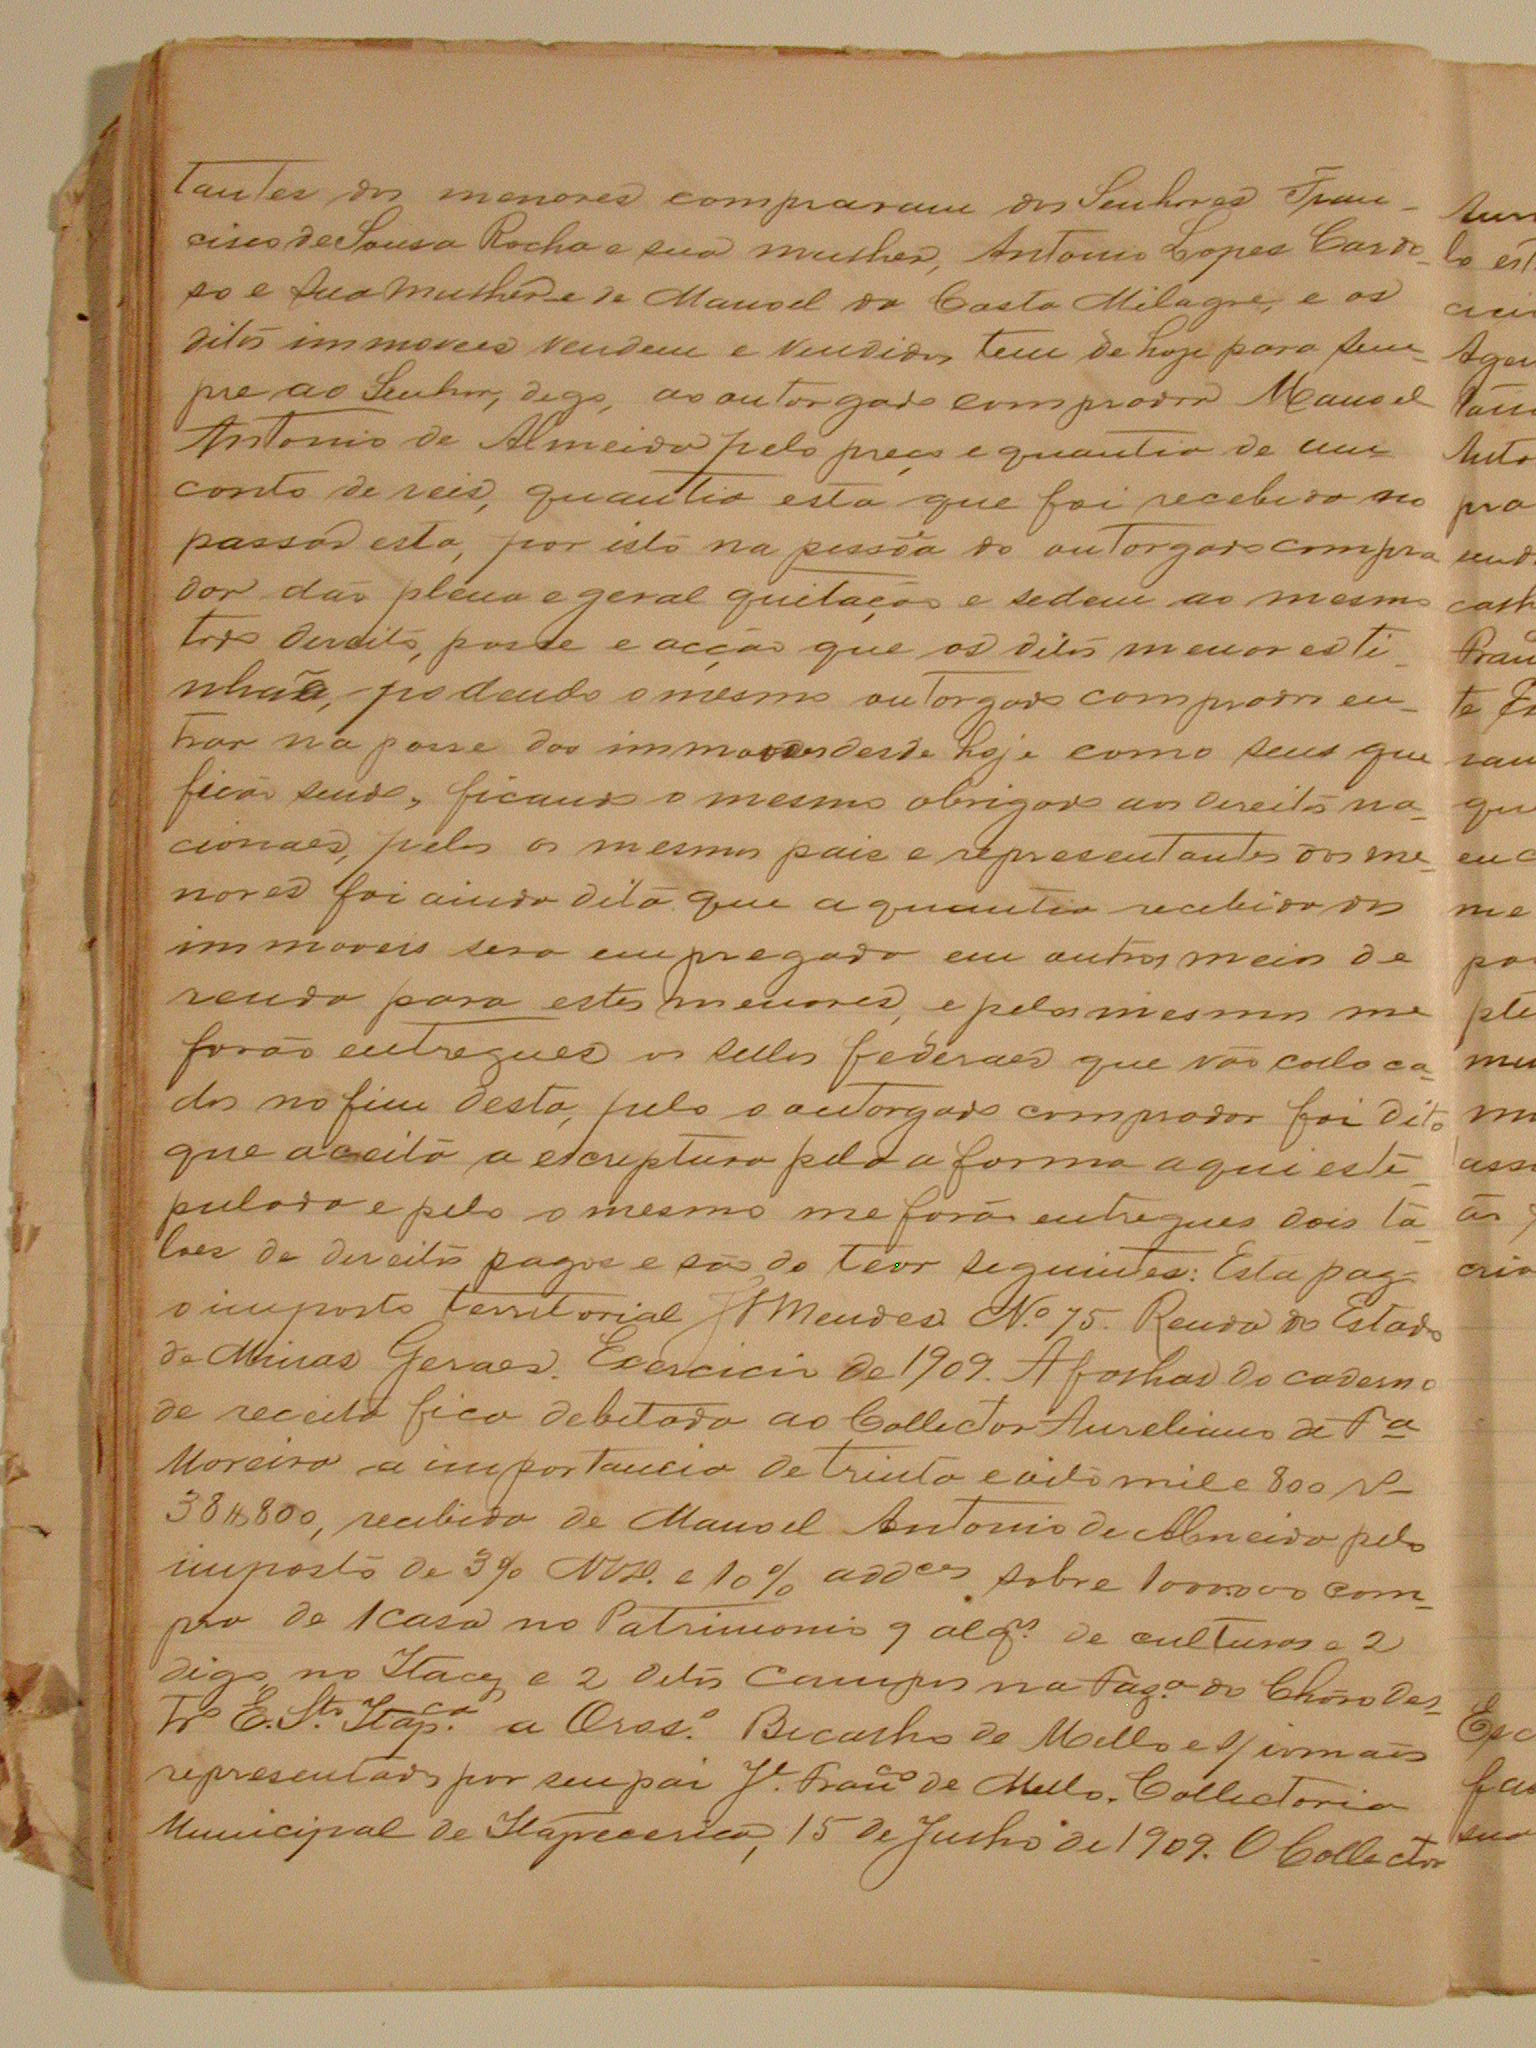 tantes dos menores compraram dos Senhores Fran-
cisco de Sousa Rocha e sua mulher, Antonio Lopes Cardo-
so e sua mulher e de Manoel da Costa Milagre, e os
ditos immoveis vendem e vendidos tem de hoje para sem-
pre ao Senhor, digo, ao outorgado comprador Manoel
Antonio de Almeida pelo preço e quantia de um
conto de reis, quantia esta que foi recebida no
passar esta, por isto na pessôa do outorgado compra
dor dão plena e geral quitação e sedem ao mesmo
todo direito, posse e acção que os ditos menores ti-
nhão, podendo o mesmo outorgado comprador en-
trar na posse dos immoveis desde hoje como seus que
ficão sendo, ficando o mesmo obrigado aos direitos na-
cionaes, pelos os mesmos pais e representantes dos me-
nores foi ainda dito que a quantia recebida dos
immoveis sera empregada em outros meios de
renda para estes menores, e pelos mesmos me
forão entregues os sellos federaes que vão colloca-
dos no fim desta, pelo o outorgado comprador foi dito
que aceita a escriptura pela a forma aqui esti-
pulada e pelo o mesmo me forão entregues dois ta-
loes de direitos pagos e são do teor seguintes: Esta pag.
o imposto territorial Mendes. N.º 75. Renda do Estado
de Minas Geraes. Exercicio de 1909. A folhas do caderno
de receita fica debitado ao Collector Aureliano de Fª
Moreira a importancia de trinta e oito mil e 800 rs
38$800, recebida de Manoel Antonio de Almeida pelo
imposto de 3% e 10% addces sobre 1000.000 com-
pra de 1 casa no Patrimonio 9 alqs. de culturas e 2
digo, no Itacy e 2 ditos campos na Fazª do Chôro Des-
to E. Sto. Itapca. a Oros.º Becalho de Mello e s/ irmãos
representados por seu pai Jé. Franco de Mello. Collectoria
Municipal de Itapecerica, 15 de Julho de 1909. O Collector